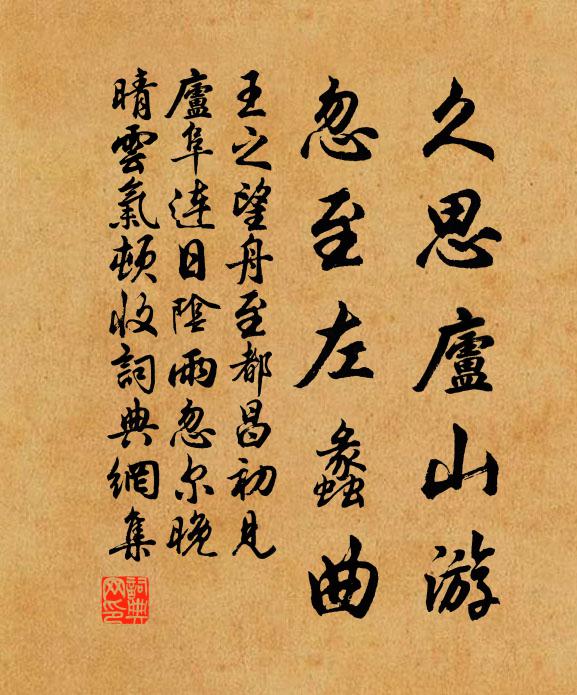 久思廬山游
忽至左蠡曲
王之望舟至都昌初見
廬阜連日陰雨忽尔晚
晴雲氣頓收詞典網集
詞典網印